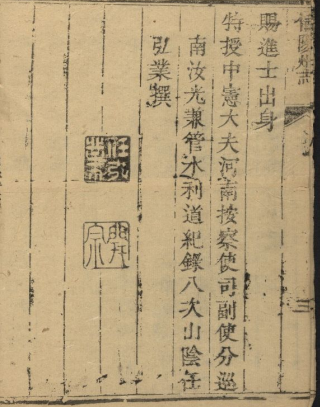 賜進士出身
特授中憲大夫河南按察使司副使分巡
南汝光兼管水利道紀錄八次山陰任
弘業撰
任弘
業印
三